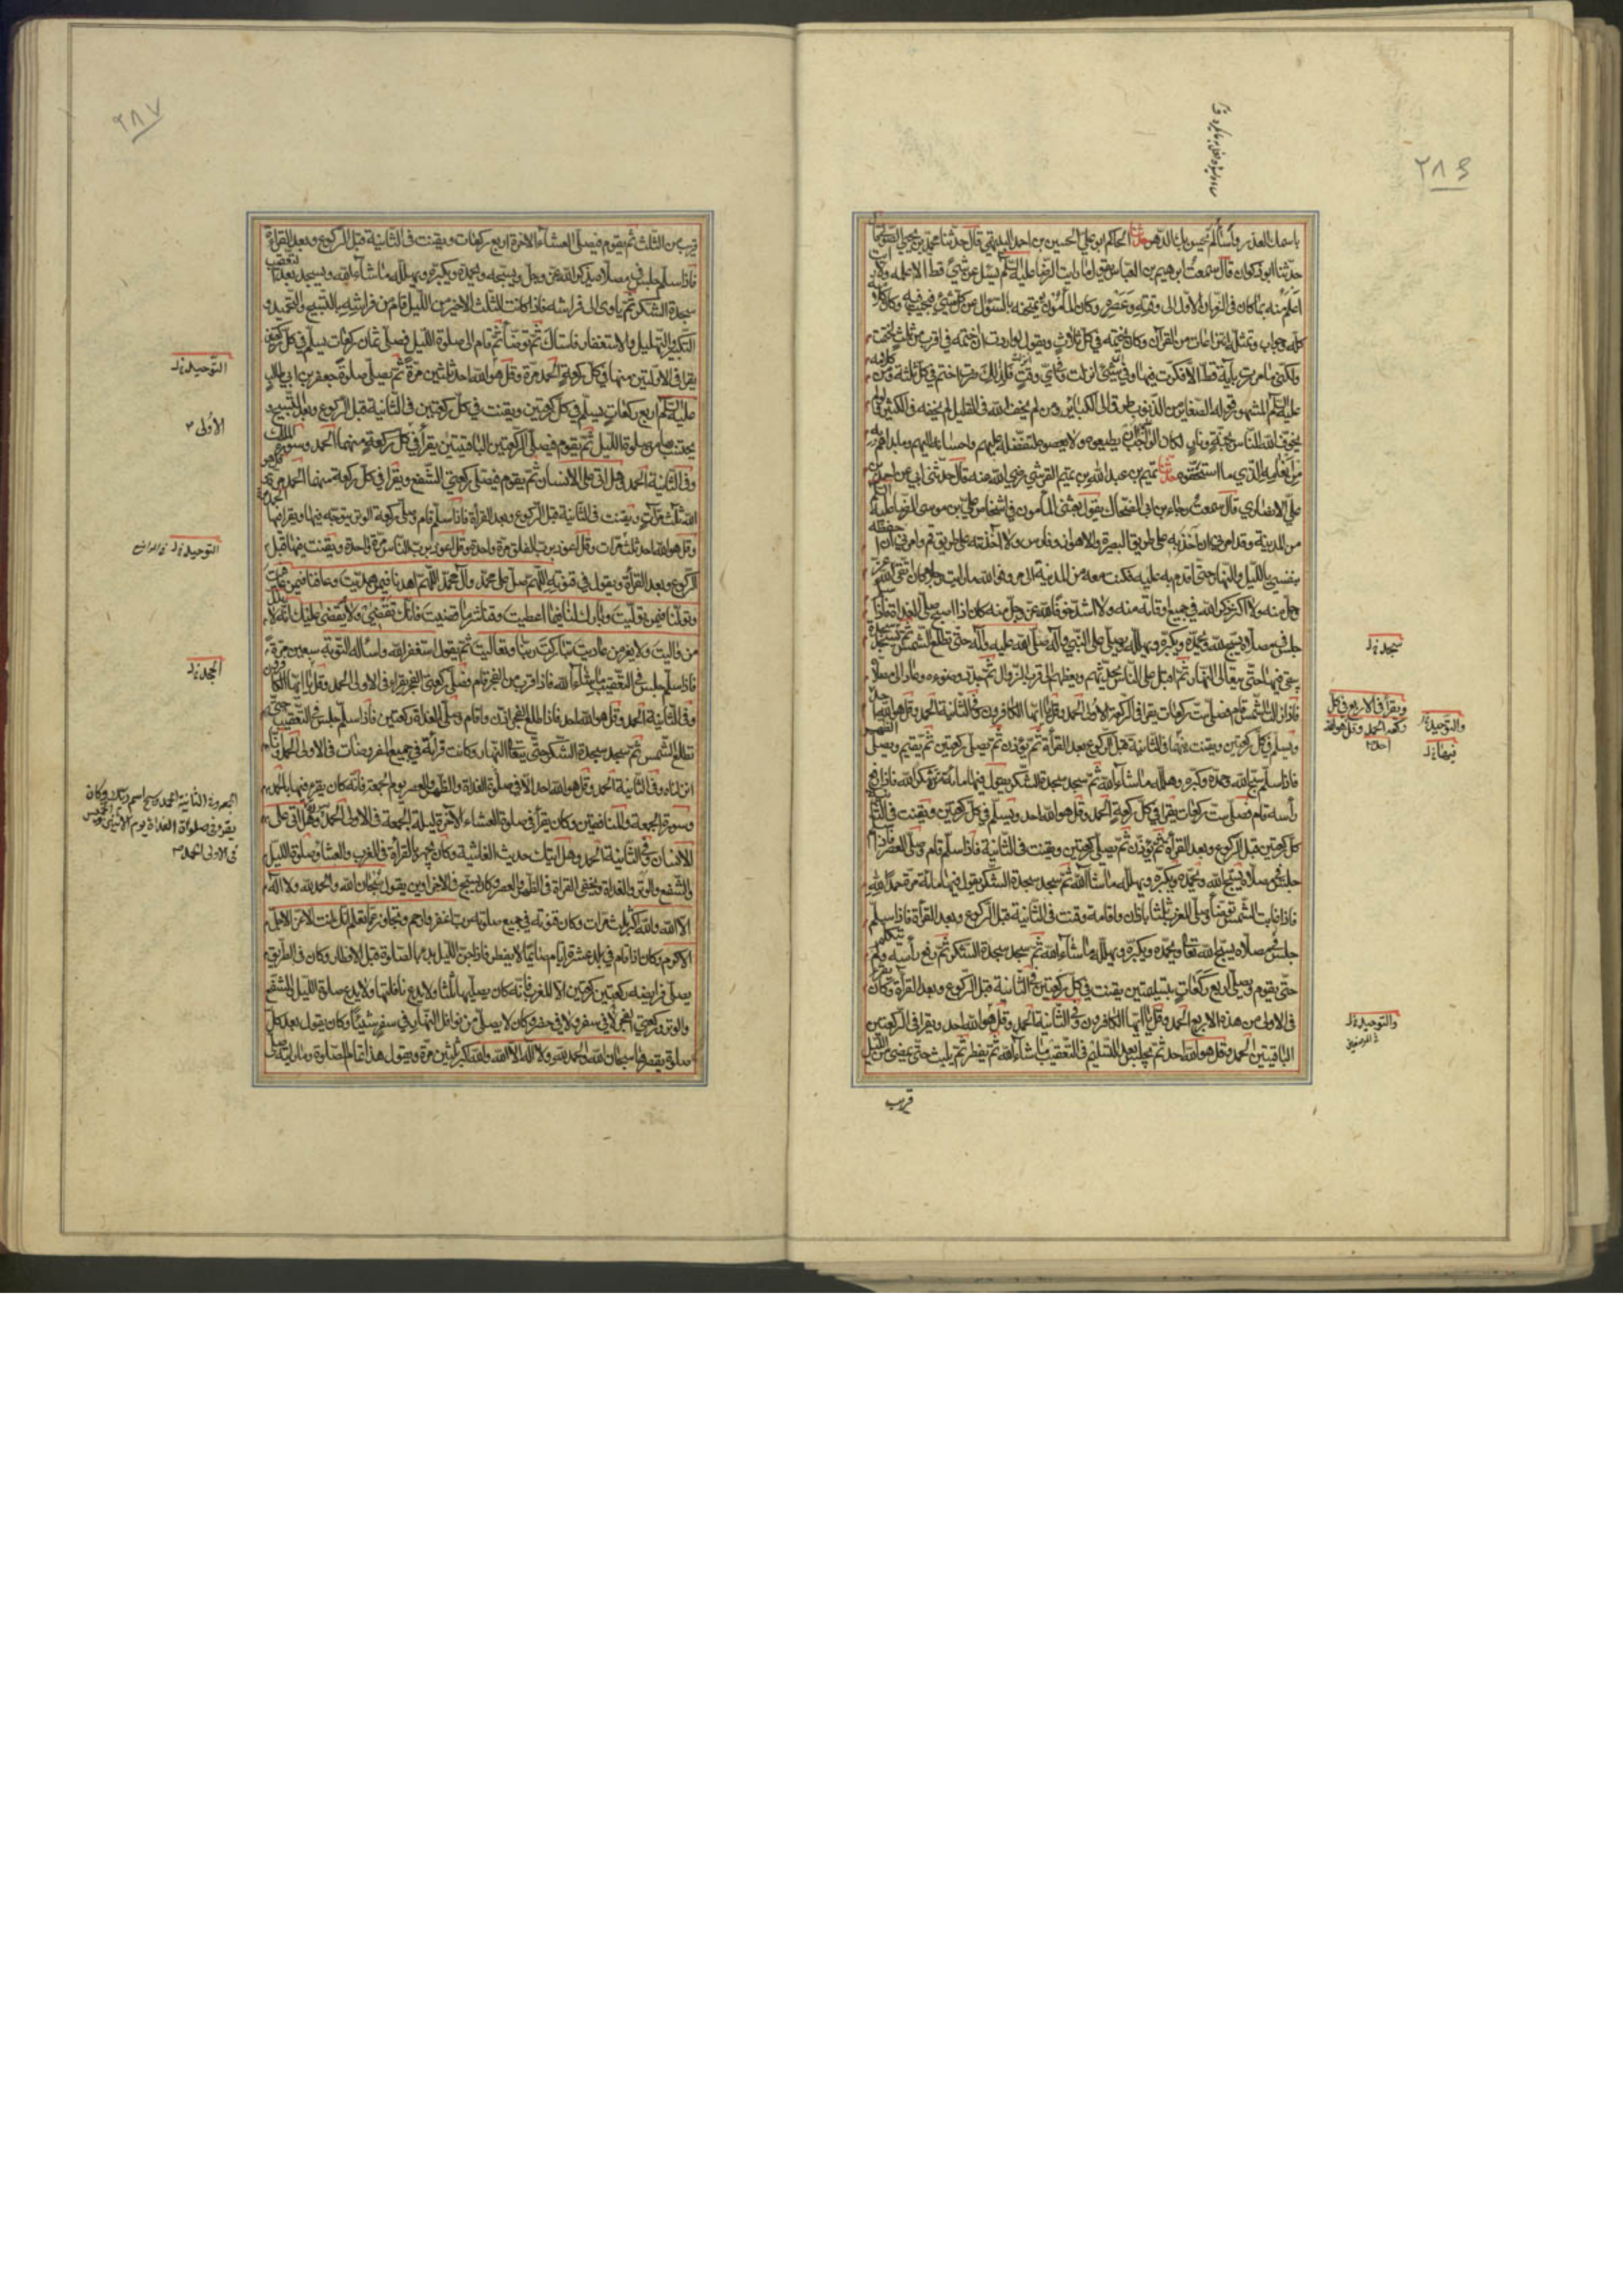 ٢٨٦
حدثنا الحاكم ابو علي الحسين بن احمد البيهقي قال حدثنا محمد بن يحيى الصولي قال
حدثنا ابو ذكوان قال سمعت ابرهيم بن العباس يقول ما رايت الرضا عليه السلم يسئل عن شئ قط الا علمه ولا رايت
اعلم منه بما كان في الزمان الاول الى وقته وعصره وكان المأمون يمتحنه بالسؤال عن كل شئ فيجيب فيه وكان كلامه
كله وجوابه وتمثله انتزاعات من القرآن وكان يختمه في كل ثلاث ويقول لو اردت ان اختمه في اقرب من ثلث لختمت
ولكنى ما مررت بآية قط الا فكرت فيها وفي اى شئ انزلت وفي اى وقت فلذلك صرت اختم في كل ثلثة ومن كلامه
عليه السلم المشهور قوله الصغائر من الذنوب طرق الى الكبائر ومن لم يخف الله فى القليل لم يخفه فى الكثير ولو لم
يخوف الله الناس بجنة ونار لكان الواجب ان يطيعوه ولا يعصوه لتفضله عليهم واحسانه اليهم وما بداهم به
من انعامه الذي ما استحقوه حدثنا تميم بن عبد الله بن تميم القرشي رضي الله عنه قال حدثني ابي عن احمد بن
علي الانصاري قال سمعت رجاء بن ابي الضحاك يقول بعثنى المأمون في اشخاص علي بن موسى الرضا عليه السلم
من المدينة وقد امرنى ان آخذ به على طريق البصرة والاهواز وفارس ولا آخذ به على طريق قم وامرني ان احفظه
بنفسي بالليل والنهار حتى اقدم به عليه فكنت معه من المدينة الى مرو فو الله ما رايت رجلا كان اتقى لله عز
وجل منه ولا اكثر ذكرا لله في جميع اوقاته منه ولا اشد خوفا لله عز وجل منه كان اذا اصبح صلى الغداة فاذا سلم
جلس في مصلاه يسبح الله ويحمده ويكبره ويهلله ويصلي على النبي وآله صلى الله عليه وآله حتى تطلع الشمس ثم يسجد سجدة
يبقى فيها حتى يتعالى النهار ثم اقبل على الناس يحدثهم ويعظهم الى قرب الزوال ثم جدد وضوءه وعاد الى مصلاه
فاذا زالت الشمس قام فصلى ست ركعات يقرا فى الركعة الاولى الحمد وقل يا ايها الكافرون وفي الثانية الحمد وقل هو الله احد
ويسلم في كل ركعتين ويقنت فيهما في الثانية قبل الركوع وبعد القرأة ثم يؤذن ثم يصلي ركعتين ثم يقيم ويصلي الظهر
فاذا سلم سبح الله وحمده وكبره وهلله ما شاء الله ثم سجد سجدة الشكر يقول فيها مائة مرة شكرا لله فاذا رفع
رأسه قام فصلى ست ركعات يقرا في كل ركعة الحمد وقل هو الله احد ويسلم في كل ركعتين ويقنت فى الثانية
كل ركعتين قبل الركوع وبعد القرأة ثم يؤذن ثم يصلي ركعتين ويقنت في الثانية فاذا سلم قام وصلى العصر فاذا سلم
جلس في مصلاه يسبح الله ويحمده ويكبره ويهلله ما شاء الله ثم سجد سجدة الشكر يقول فيها مائة مرة حمدا لله
فاذا غابت الشمس توضأ وصلى المغرب ثلثا باذان واقامة وقنت في الثانية قبل الركوع وبعد القرأة فاذا سلم
جلس في مصلاه يسبح الله تعالى ويحمده ويكبره ويهلله ما شاء الله ثم سجد سجدة الشكر ثم رفع رأسه ولم يتكلم
حتى يقوم ويصلي اربع ركعات بتسليمتين يقنت في كل ركعتين في الثانية قبل الركوع وبعد القرأة وكان يقرا
فى الاولى من هذه الاربع الحمد وقل يا ايها الكافرون وفي الثانية الحمد وقل هو الله احد ويقرا فى الركعتين
الباقيتين الحمد وقل هو الله احد ثم يجلس بعد التسليم في التعقيب ما شاء الله ثم يفطر ثم يلبث حتى يمضي من الليل
قريب
ويقرأ في الاربع في كل
ركعة الحمد وقل هو الله
احد
٢٨٧
قريب من الثلث ثم يقوم فيصلى العشاء الآخرة اربع ركعات ويقنت فى الثانية قبل الركوع وبعد القرأة
فاذا سلم جلس في مصلاه يذكر الله عز وجل ويسبحه ويحمده ويكبره ويهلله ما شاء الله ويسجد بعد التعقيب
سجدة الشكر ثم ياوى الى فراشه فاذا كانت الثلث الاخير من الليل قام من فراشه بالتسبيح والتحميد و
التكبير والتهليل والاستغفار فاستاك ثم توضأ ثم قام الى صلوة الليل فصلى ثمان ركعات يسلم في كل ركعتين
يقرا في الاوليين منها في كل ركعة الحمد مرة وقل هو الله احد ثلثين مرة ثم يصلى صلوة جعفر بن ابي طالب
عليه السلم اربع ركعات يسلم في كل ركعتين ويقنت في كل ركعتين فى الثانية قبل الركوع وبعد التسبيح و
يحتسب بها من صلوة الليل ثم يقوم فيصلى الركعتين الباقيتين يقرأ في كل ركعة منهما الحمد وسورة الملك
وفي الثانية الحمد وهل اتى على الانسان ثم يقوم فيصلى ركعتي الشفع ويقرا في كل ركعة منهما الحمد مرة وقل هو
الله ثلث مرات ويقنت فى الثانية قبل الركوع وبعد القرأة فاذا سلم قام وصلى ركعة الوتر يتوجه فيها ويقرا فيها الحمد
وقل هو الله احد ثلث مرات وقل اعوذ برب الفلق مرة واحدة وقل اعوذ برب الناس مرة واحدة ويقنت فيها قبل
الركوع وبعد القرأة ويقول في قنوته اللهم صل على محمد وآل محمد اللهم اهدنا فيمن هديت وعافنا فيمن عافيت
وتولنا فيمن توليت وبارك لنا فيما اعطيت وقنا شر ما قضيت فانك تقضى ولا يقضى عليك انه لا يذل
من واليت ولا يعز من عاديت تباركت ربنا وتعاليت ثم يقول استغفر الله واسأله التوبة سبعين مرة
فاذا سلم جلس في التعقيب ما شاء الله فاذا قرب من الفجر قام وصلى ركعتى الفجر يقرا فى الاولى الحمد وقل يا ايها الكافرون
وفى الثانية الحمد وقل هو الله احد فاذا طلع الفجر اذن واقام وصلى الغداة ركعتين فاذا سلم جلس في التعقيب حتى
تطلع الشمس ثم سجد سجدة الشكر حتى يتعالى النهار وكانت قرأته في جميع المفروضات فى الاولى الحمد وانا
انزلناه وفى الثانية الحمد وقل هو الله احد الا في صلوة الغداة والظهر والعصر يوم الجمعة فانه كان يقرء فيها بالحمد
وسورة الجمعة والمنافقين وكان يقرأ في صلوة العشاء الآخرة ليلة الجمعة فى الاولى الحمد وهل اتى على
الانسان وفي الثانية الحمد وهل اتيك حديث الغاشية وكان يجهر بالقرأة في المغرب والعشاء وصلوة الليل
والشفع والوتر والغداة ويخفى القرأة فى الظهر والعصر وكان يسبح في الاخراوين يقول سبحان الله والحمد لله ولا اله
الا الله والله اكبر ثلث مرات وكان قنوته في جميع صلوته رب اغفر وارحم وتجاوز عما تعلم انك انت الاعز الاجل
الاكرم وكان اذا اقام في بلد عشرة ايام صائما لا يفطر فاذا جن الليل بدء بالصلوة قبل الافطار وكان في الطريق
يصلى فرايضه ركعتين ركعتين الا المغرب فانه كان يصليها ثلثا ولا يدع نافلتها ولا يدع صلوة الليل والشفع
والوتر وركعتي الفجر لا في سفر ولا في حضر وكان لا يصلى من نوافل النهار في سفر شيئا وكان يقول بعد كل
صلوة يقصرها سبحان الله والحمد لله ولا اله الا الله والله اكبر ثلثين مرة ويقول هذا تمام الصلوة وما رايته صلى
الاولى
الجمعة وفى الثانية الحمد وسبح اسم ربك وكان
يقرء في صلوة الغداة يوم الاثنين ويوم الخميس
فى الاولى الحمد